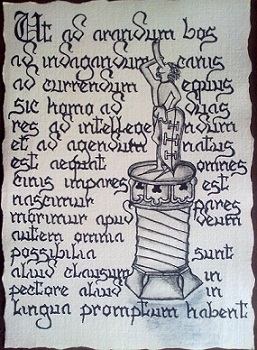 Ut ad arandum bos
ad indagandum canis
ad currendum equus
sic homo ad duas
res ad intellegendum
et ad agendum natus
est aequat omnes
cinis impares est
nascimur pares
morimur apud deum
autem omnia
possibilia sunt
aliud clausum in
pectore aliud in
lingua promptum habent